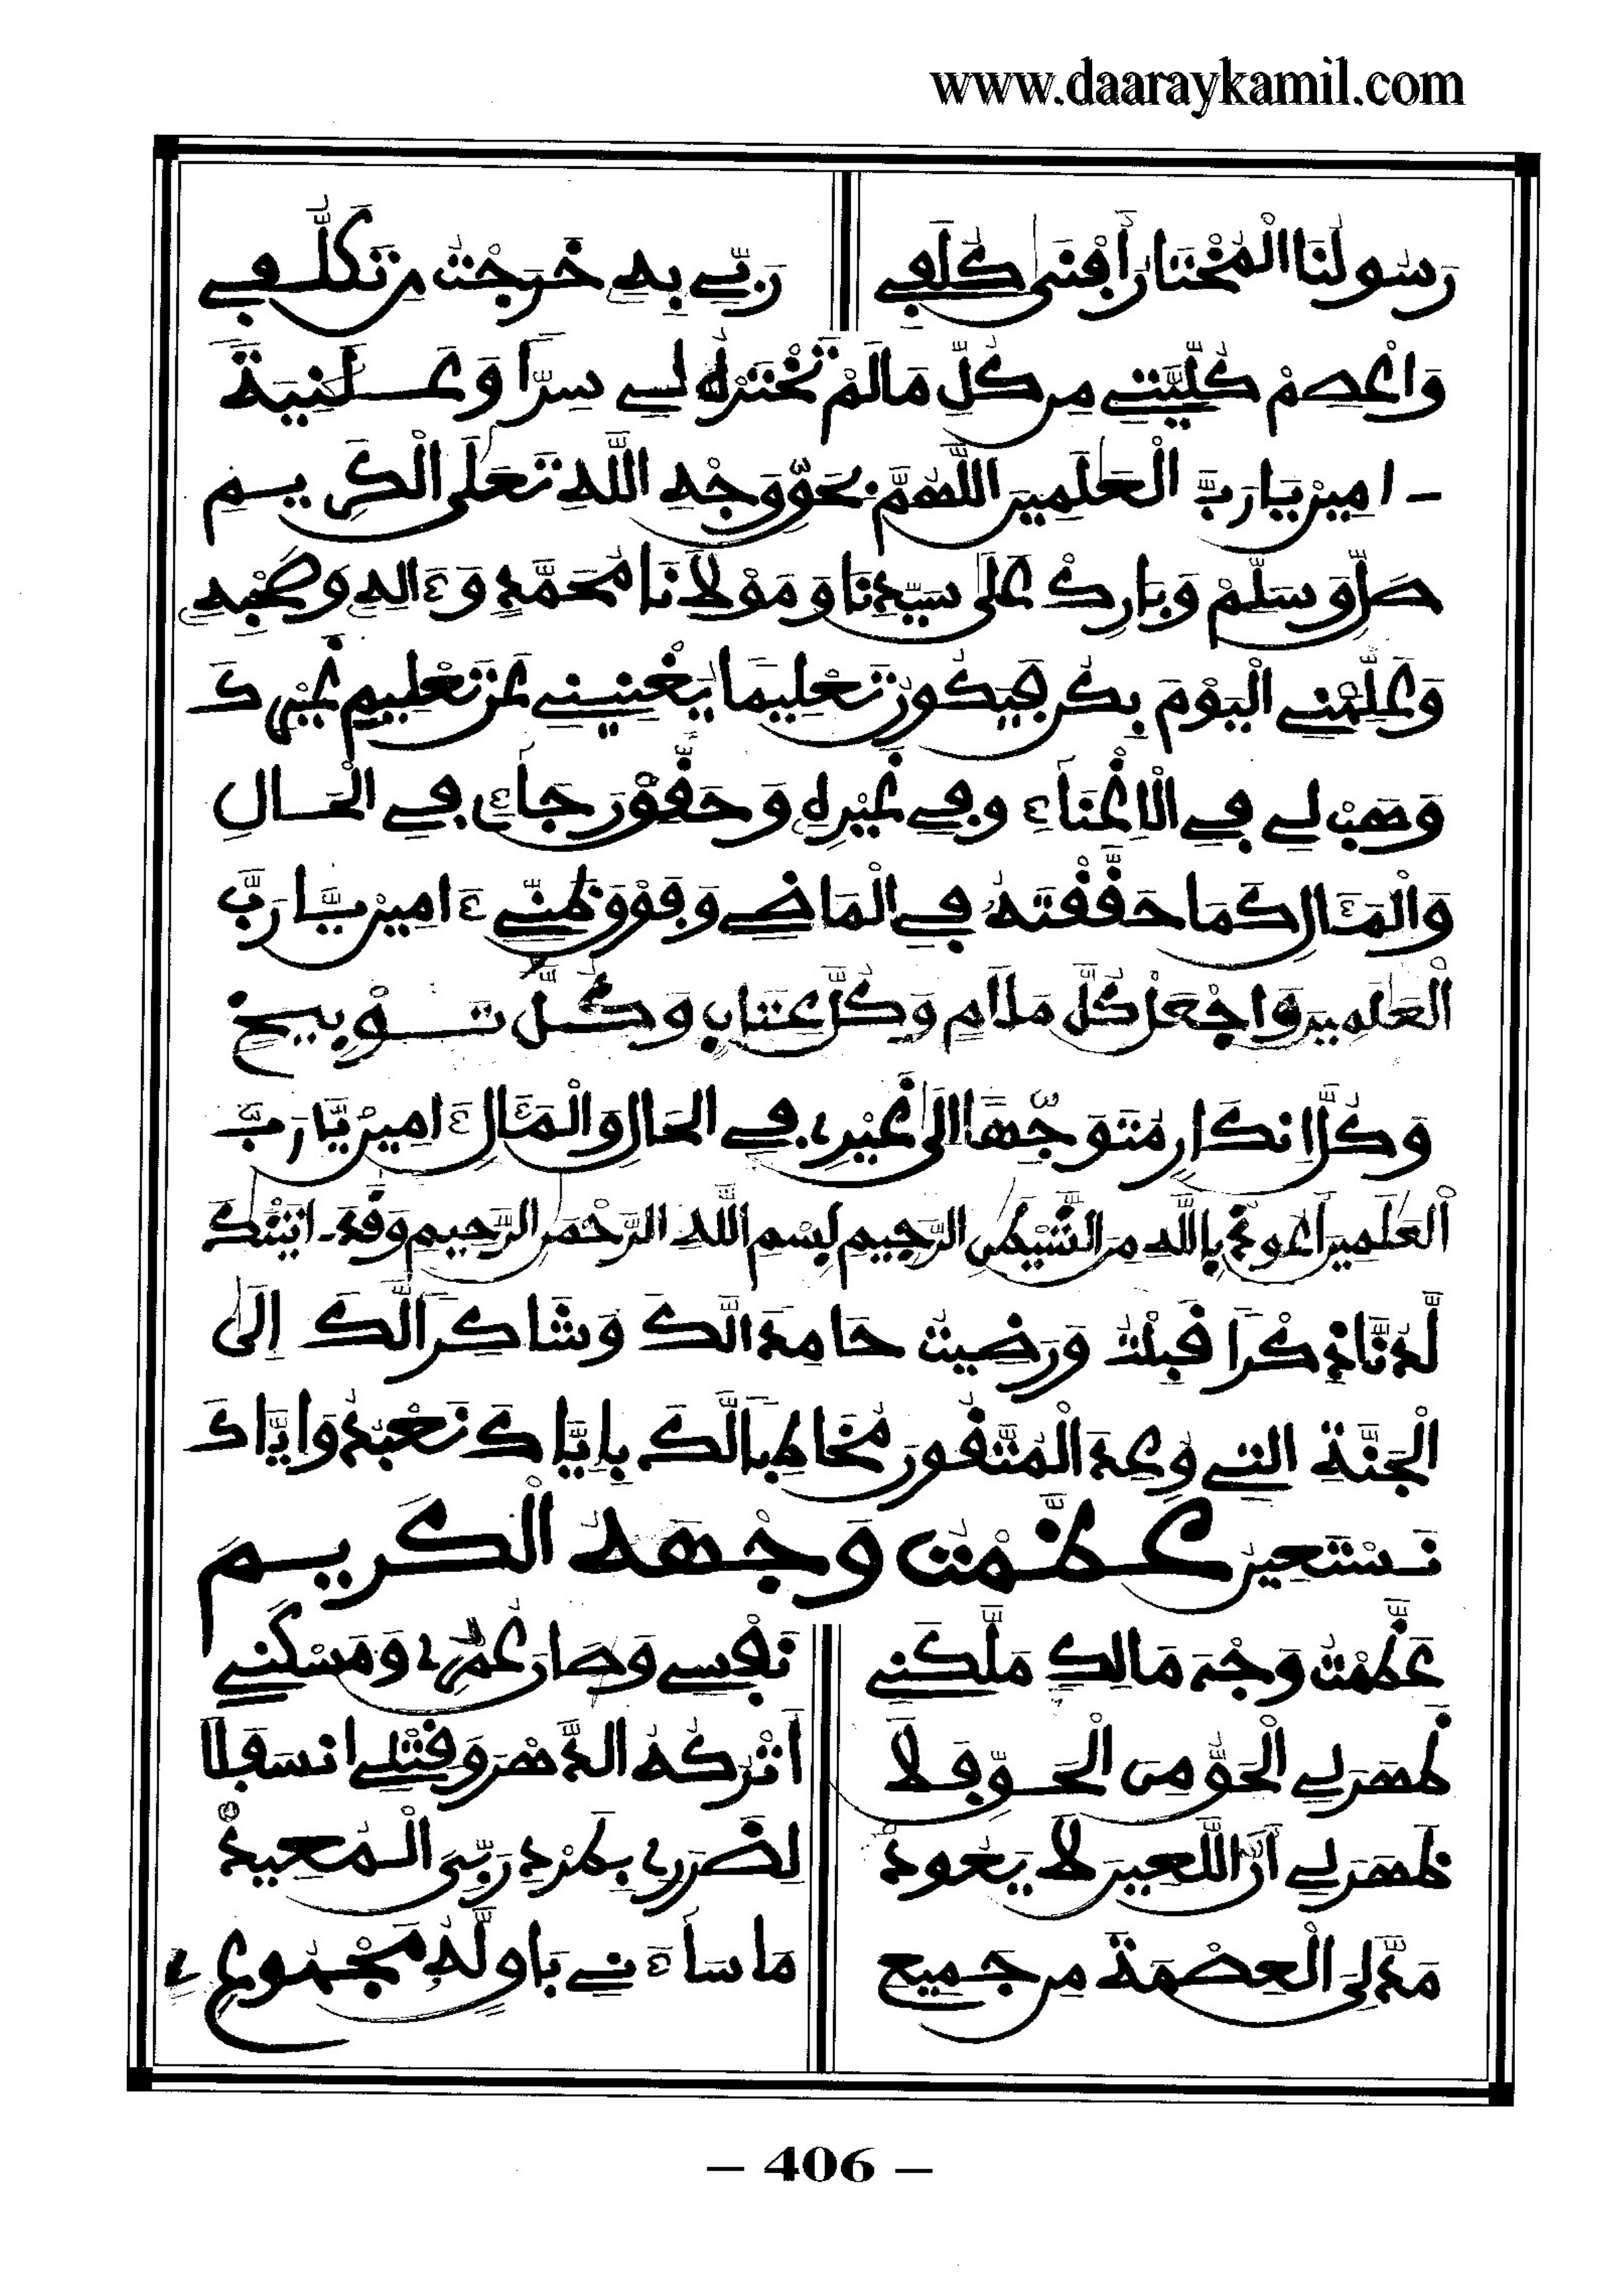 www.daaraykamil.com
رَسُولُنَا الْمُخْتَارُ أَفْنَى كَلَفِي رَبِّي بِهِ خَرَجْتُ مِن تَكَلُّفِي
وَاعْصِمْ كُلِّيَّتِي مِن كُلِّ مَا لَمْ تَخْتَرْهُ لِي سِرًّا وَعَلَنِيَةً
ءامِين يَا رَبَّ الْعَلَمِين اللَّهُمَّ بِحَقِّ وَجْهِ اللَّهِ تَعَلَى الْكَرِيم
صَلِّ وَسَلِّمْ وَبَارِكْ عَلَى سَيِّدِنَا وَمَوْلَانَا مُحَمَّدٍ وَءَالِهِ وَصَحْبِهِ
وَعَلِّمْنِي الْيَوْمَ بِكُن فَيَكُونُ تَعْلِيمًا يُغْنِينِي عَن تَعْلِيمِ غَيْرِكَ
وَهَبْ لِي فِي الْإِغْنَاءِ وَفِي غَيْرِهِ وَحَقِّقْ رَجَاءِي فِي الْحَالِ
وَالْمَئَالِ كَمَا حَقَّقْتَهُ فِي الْمَاضِي وَفَوْقَ ظَنِّي ءَامِين يَا رَبَّ
الْعَلَمِين وَاجْعَلْ كُلَّ مَلَامٍ وَكُلَّ عِتَابٍ وَكُلَّ تَوْبِيخٍ
وَكُلَّ إِنكَارٍ مُتَوَجِّهًا إِلَى غَيْرِي فِي الْحَالِ وَالْمَئَالِ ءَامِين يَا رَبَّ
الْعَلَمِين أَعُوذُ بِاللَّهِ مِنَ الشَّيْطَنِ الرَّجِيمِ بِسْمِ اللَّهِ الرَّحْمَنِ الرَّحِيمِ وَقَدَ ـاتَيْنَكَ
لَّدُنَّا ذِكْرًا قَبِلْتُ وَرَضِيتُ حَامِدًا لَّكَ وَشَاكِرًا لَّكَ إِلَى
الْجَنَّةِ الَّتِي وُعِدَ الْمُتَّقُونَ مُخَاطِبًا لَّكَ بِإِيَّاكَ نَعْبُدُ وَإِيَّاكَ
نَسْتَعِين عَظَّمْتُ وَجْهَهُ الْكَرِيم
عَظَّمْتُ وَجْهَ مَالِكٍ مَلَّكَنِي نَفْسِي وَصَانَ عُمْرِي وَمَسْكَنِي
ظَهَرَ لِي الْحَقُّ مِنَ الْحَقِّ فَلَا أَتْرُكُهُ الدَّهْرَ وَقَتْلِي انسَفَلَا
ظَهَرَ لِي أَنَّ اللَّعِينَ لَا يَعُودْ لِضَرَرِي بِطَرْدِ رَبِّيَ الْمُعِيدْ
مَدَّ لِيَ الْعِصْمَةَ مِن جَمِيعِ مَا سَاءَنِي بَاقٍ لَهُ مَجْمُوعِي
– 406 –